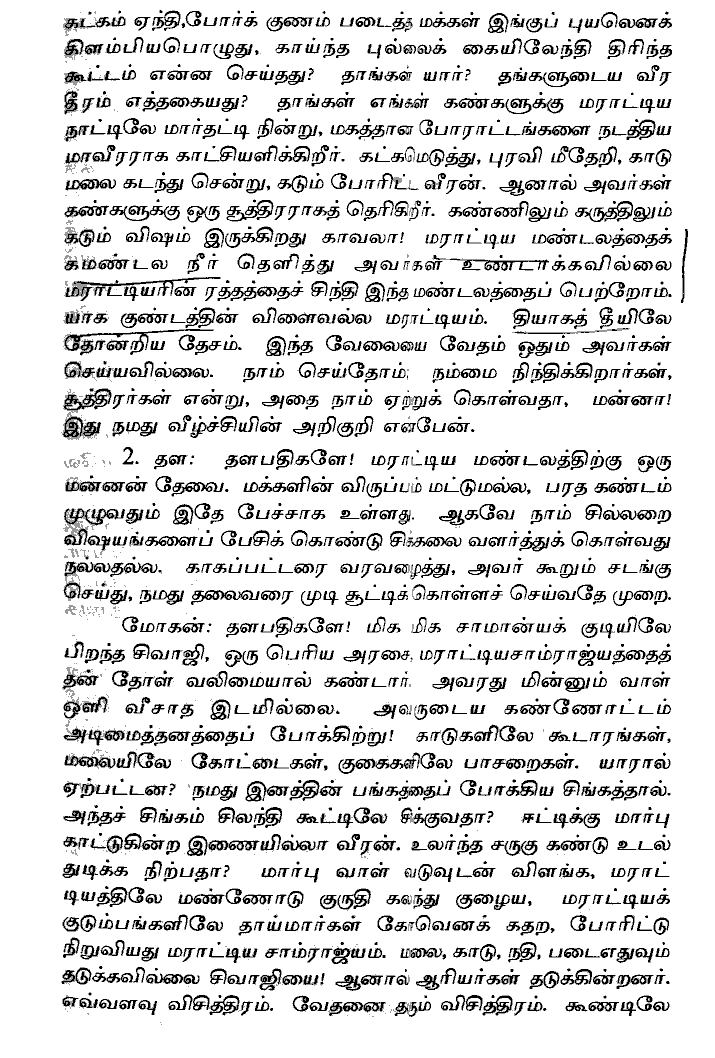 கட்கம் ஏந்தி,போர்க் குணம் படைத்த மக்கள் இங்குப் புயலெனக்
கிளம்பியபொழுது, காய்ந்த புல்லைக் கையிலேந்தி திரிந்த
கூட்டம் என்ன செய்தது? தாங்கள் யார்? தங்களுடைய வீர
தீரம் எத்தகையது? தாங்கள் எங்கள் கண்களுக்கு மராட்டிய
நாட்டிலே மார்தட்டி நின்று, மகத்தான போராட்டங்களை நடத்திய
மாவீரராக காட்சியளிக்கிறீர். கட்கமெடுத்து, புரவி மீதேறி, காடு
மலை கடந்து சென்று, கடும் போரிட்ட வீரன். ஆனால் அவர்கள்
கண்களுக்கு ஒரு சூத்திரராகத் தெரிகிறீர். கண்ணிலும் கருத்திலும்
கடும் விஷம் இருக்கிறது காவலா! மராட்டிய மண்டலத்தைக்
கமண்டல நீர் தெளித்து அவர்கள் உண்டாக்கவில்லை
மராட்டியரின் ரத்தத்தைச் சிந்தி இந்த மண்டலத்தைப் பெற்றோம்.
யாக குண்டத்தின் விளைவல்ல மராட்டியம். தியாகத் தீயிலே
தோன்றிய தேசம். இந்த வேலையை வேதம் ஒதும் அவர்கள்
செய்யவில்லை. நாம் செய்தோம்; நம்மை நிந்திக்கிறார்கள்,
சூத்திரர்கள் என்று, அதை நாம் ஏற்றுக் கொள்வதா, மன்னா!
இது நமது வீழ்ச்சியின் அறிகுறி என்பேன்.
2. தள: தளபதிகளே! மராட்டிய மண்டலத்திற்கு ஒரு
மன்னன் தேவை. மக்களின் விருப்பம் மட்டுமல்ல, பரத கண்டம்
முழுவதும் இதே பேச்சாக உள்ளது. ஆகவே நாம் சில்லறை
விஷயங்களைப் பேசிக் கொண்டு சிக்கலை வளர்த்துக் கொள்வது
நல்லதல்ல. காகப்பட்டரை வரவழைத்து, அவர் கூறும் சடங்கு
செய்து, நமது தலைவரை முடி சூட்டிக்கொள்ளச் செய்வதே முறை.
மோகன்: தளபதிகளே! மிக மிக சாமான்யக் குடியிலே
பிறந்த சிவாஜி, ஒரு பெரிய அரசை, மராட்டியசாம்ராஜ்யத்தைத்
தன் தோள் வலிமையால் கண்டார். அவரது மின்னும் வாள்
ஒளி வீசாத இடமில்லை. அவருடைய கண்ணோட்டம்
அடிமைத்தனத்தைப் போக்கிற்று! காடுகளிலே கூடாரங்கள்,
மலையிலே கோட்டைகள், குகைகளிலே பாசறைகள். யாரால்
ஏற்பட்டன? நமது இனத்தின் பங்கத்தைப் போக்கிய சிங்கத்தால்.
அந்தச் சிங்கம் சிலந்தி கூட்டிலே சிக்குவதா? ஈட்டிக்கு மார்பு
காட்டுகின்ற இணையில்லா வீரன். உலர்ந்த சருகு கண்டு உடல்
துடிக்க நிற்பதா? மார்பு வாள் வடுவுடன் விளங்க, மராட்
டியத்திலே மண்ணோடு குருதி கலந்து குழைய, மராட்டியக்
குடும்பங்களிலே தாய்மார்கள் கோவெனக் கதற, போரிட்டு
நிறுவியது மராட்டிய சாம்ராஜ்யம். மலை, காடு, நதி, படைஎதுவும்
தடுக்கவில்லை சிவாஜியை! ஆனால் ஆரியர்கள் தடுக்கின்றனர்.
எவ்வளவு விசித்திரம். வேதனை தரும் விசித்திரம். கூண்டிலே